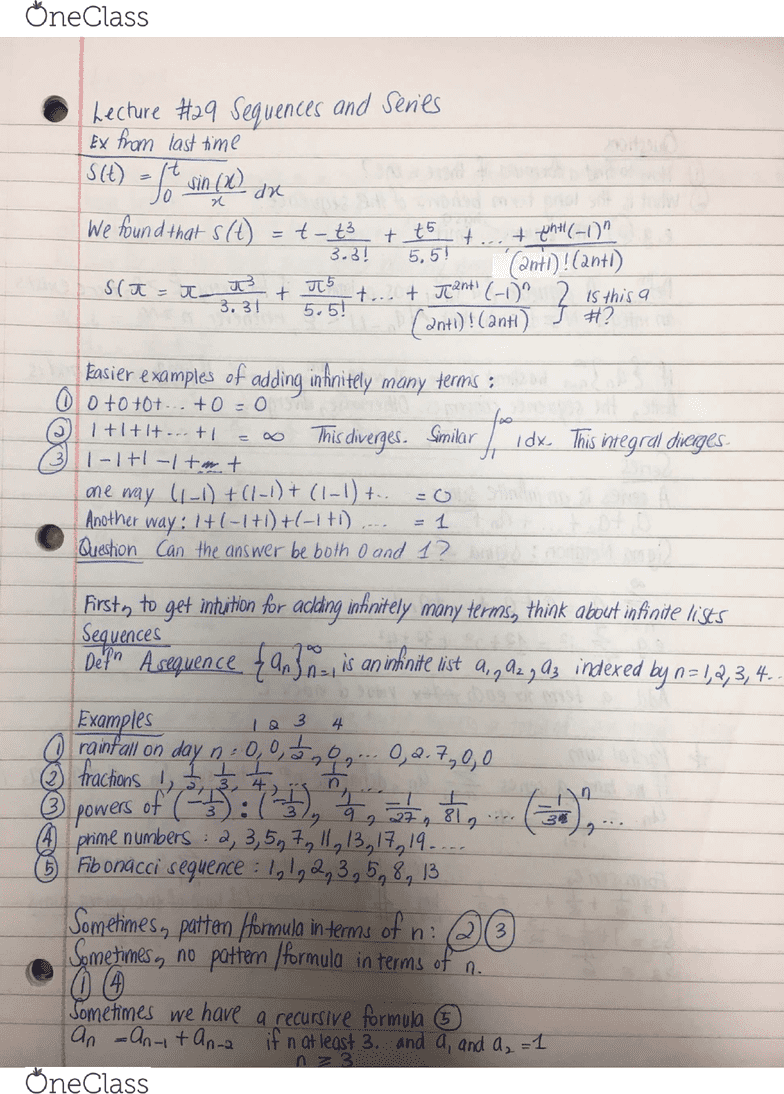 OneClass
Lecture #29 Sequences and Series
Ex from last time
S(t) = ∫₀ᵗ sin(x)/x dx
We found that S(t) = t - t³/3.3! + t⁵/5.5! + ... + tⁿ⁺¹(-1)ⁿ/(2n+1)!(2n+1)
S(π = π - π³/3.3! + π⁵/5.5! + ... + π²ⁿ⁺¹(-1)ⁿ/(2n+1)!(2n+1) } Is this a #?
Easier examples of adding infinitely many terms :
① 0+0+0+... +0 = 0
② 1+1+1+... +1 = ∞ This diverges. Similar ∫₁^∞ 1dx. This integral diverges.
③ 1-1+1-1+... +
one way (1-1)+(1-1)+(1-1)+.. = 0
Another way: 1+(-1+1)+(-1+1) .... = 1
Question Can the answer be both 0 and 1?
First, to get intuition for adding infinitely many terms, think about infinite lists
Sequences
Defⁿ A sequence {aₙ}∞ₙ₌₁ is an infinite list a₁, a₂, a₃ indexed by n=1,2,3,4..
Examples 1 2 3 4
① rainfall on day n: 0, 0, 1/2, 0, ... 0, 2.7, 0, 0
② fractions 1, 1/2, 1/3, 1/4, ... 1/n, ...
③ powers of (-1/3) : (-1/3), 1/9, -1/27, 1/81, .... (-1/3)ⁿ, ...
④ prime numbers : 2, 3, 5, 7, 11, 13, 17, 19....
⑤ Fibonacci sequence : 1, 1, 2, 3, 5, 8, 13
Sometimes, pattern /formula in terms of n: ② ③
Sometimes, no pattern /formula in terms of n.
① ④
Sometimes we have a recursive formula ⑤
aₙ = aₙ₋₁ + aₙ₋₂ if n at least 3. and a₁ and a₂ = 1
n ≥ 3
OneClass